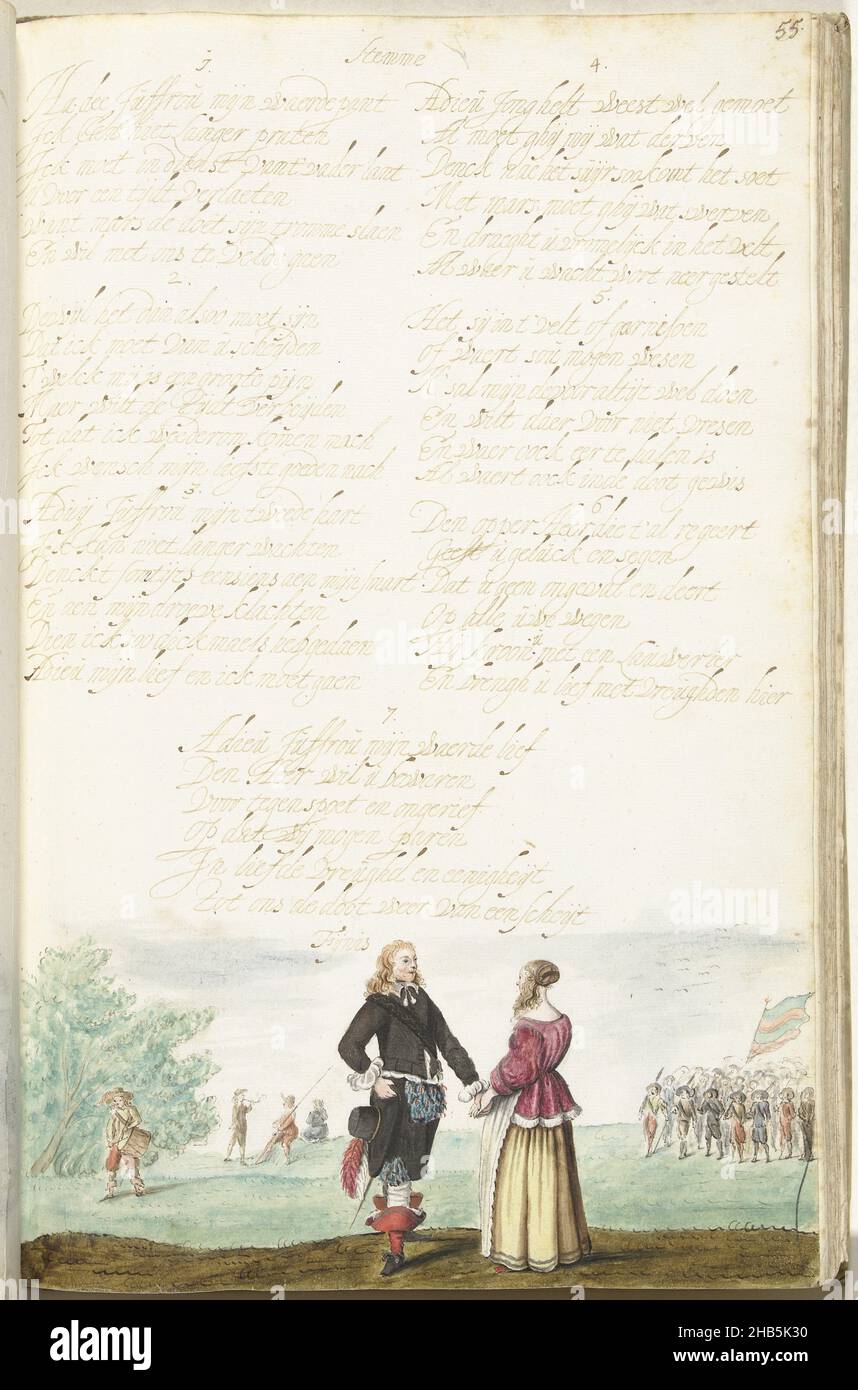 55.
Stemme
1.
Ha dee Juffrou mijn waerde pant
Ick niet langer praten
Ick moet in dienst vant vaderlant
u voor een tijdt verlaeten
want mars de doet sijn tromme slaen
En wil met ons te velde gaen
2.
Dewijl het dan alsoo moet sijn
Dat ick moet van u scheyden
T'welck mij is een groote pijn
Maer wilt de tijdt verbeyden
Tot dat ick wederom komen mach
Ick wensch mijn liefste goeden nach
3.
Adieu Juffrou mijn twede hart
Ick niet langer wachten
Denckt somtijts eensiens aen mijn smart
En aen mijn droeve klachten
Dien ick dickmaels heb gedaen
Adieu mijn lief en ick moet gaen
4.
Adieu Jonghelt weest wel gemoet
Al moet ghij mij wat derven
Denck nae het suijr soo komt het soet
Met mars moet ghij wat swerven
En draeght u vromelijck in het velt
Al waer u wacht wort neer gestelt
5.
Het sij int velt of garnisoen
of waert sou mogen wesen
K sal mijn devoor altijt wel doen
En wilt daer voor niet vresen
En waer oock eer te halen is
Al waert oock inde doot gewis
6
Den opper Heer die t'al regeert
Geeft u geluck en segen
Dat u geen ongeval en deert
Op alle uwe wegen
kroon u met een Lauwerier
En brengh u lief met vreughden hier
7.
Adieu Juffrou mijn waerde lief
Den Heer wil u bewaren
voor tegenspoet en ongerief
op dat wij mogen paren
In liefde vreughd en eenigheyt
Tot ons de doot weer van een scheijt
Finis
alamy
Image ID: 2HB5K30
www.alamy.com